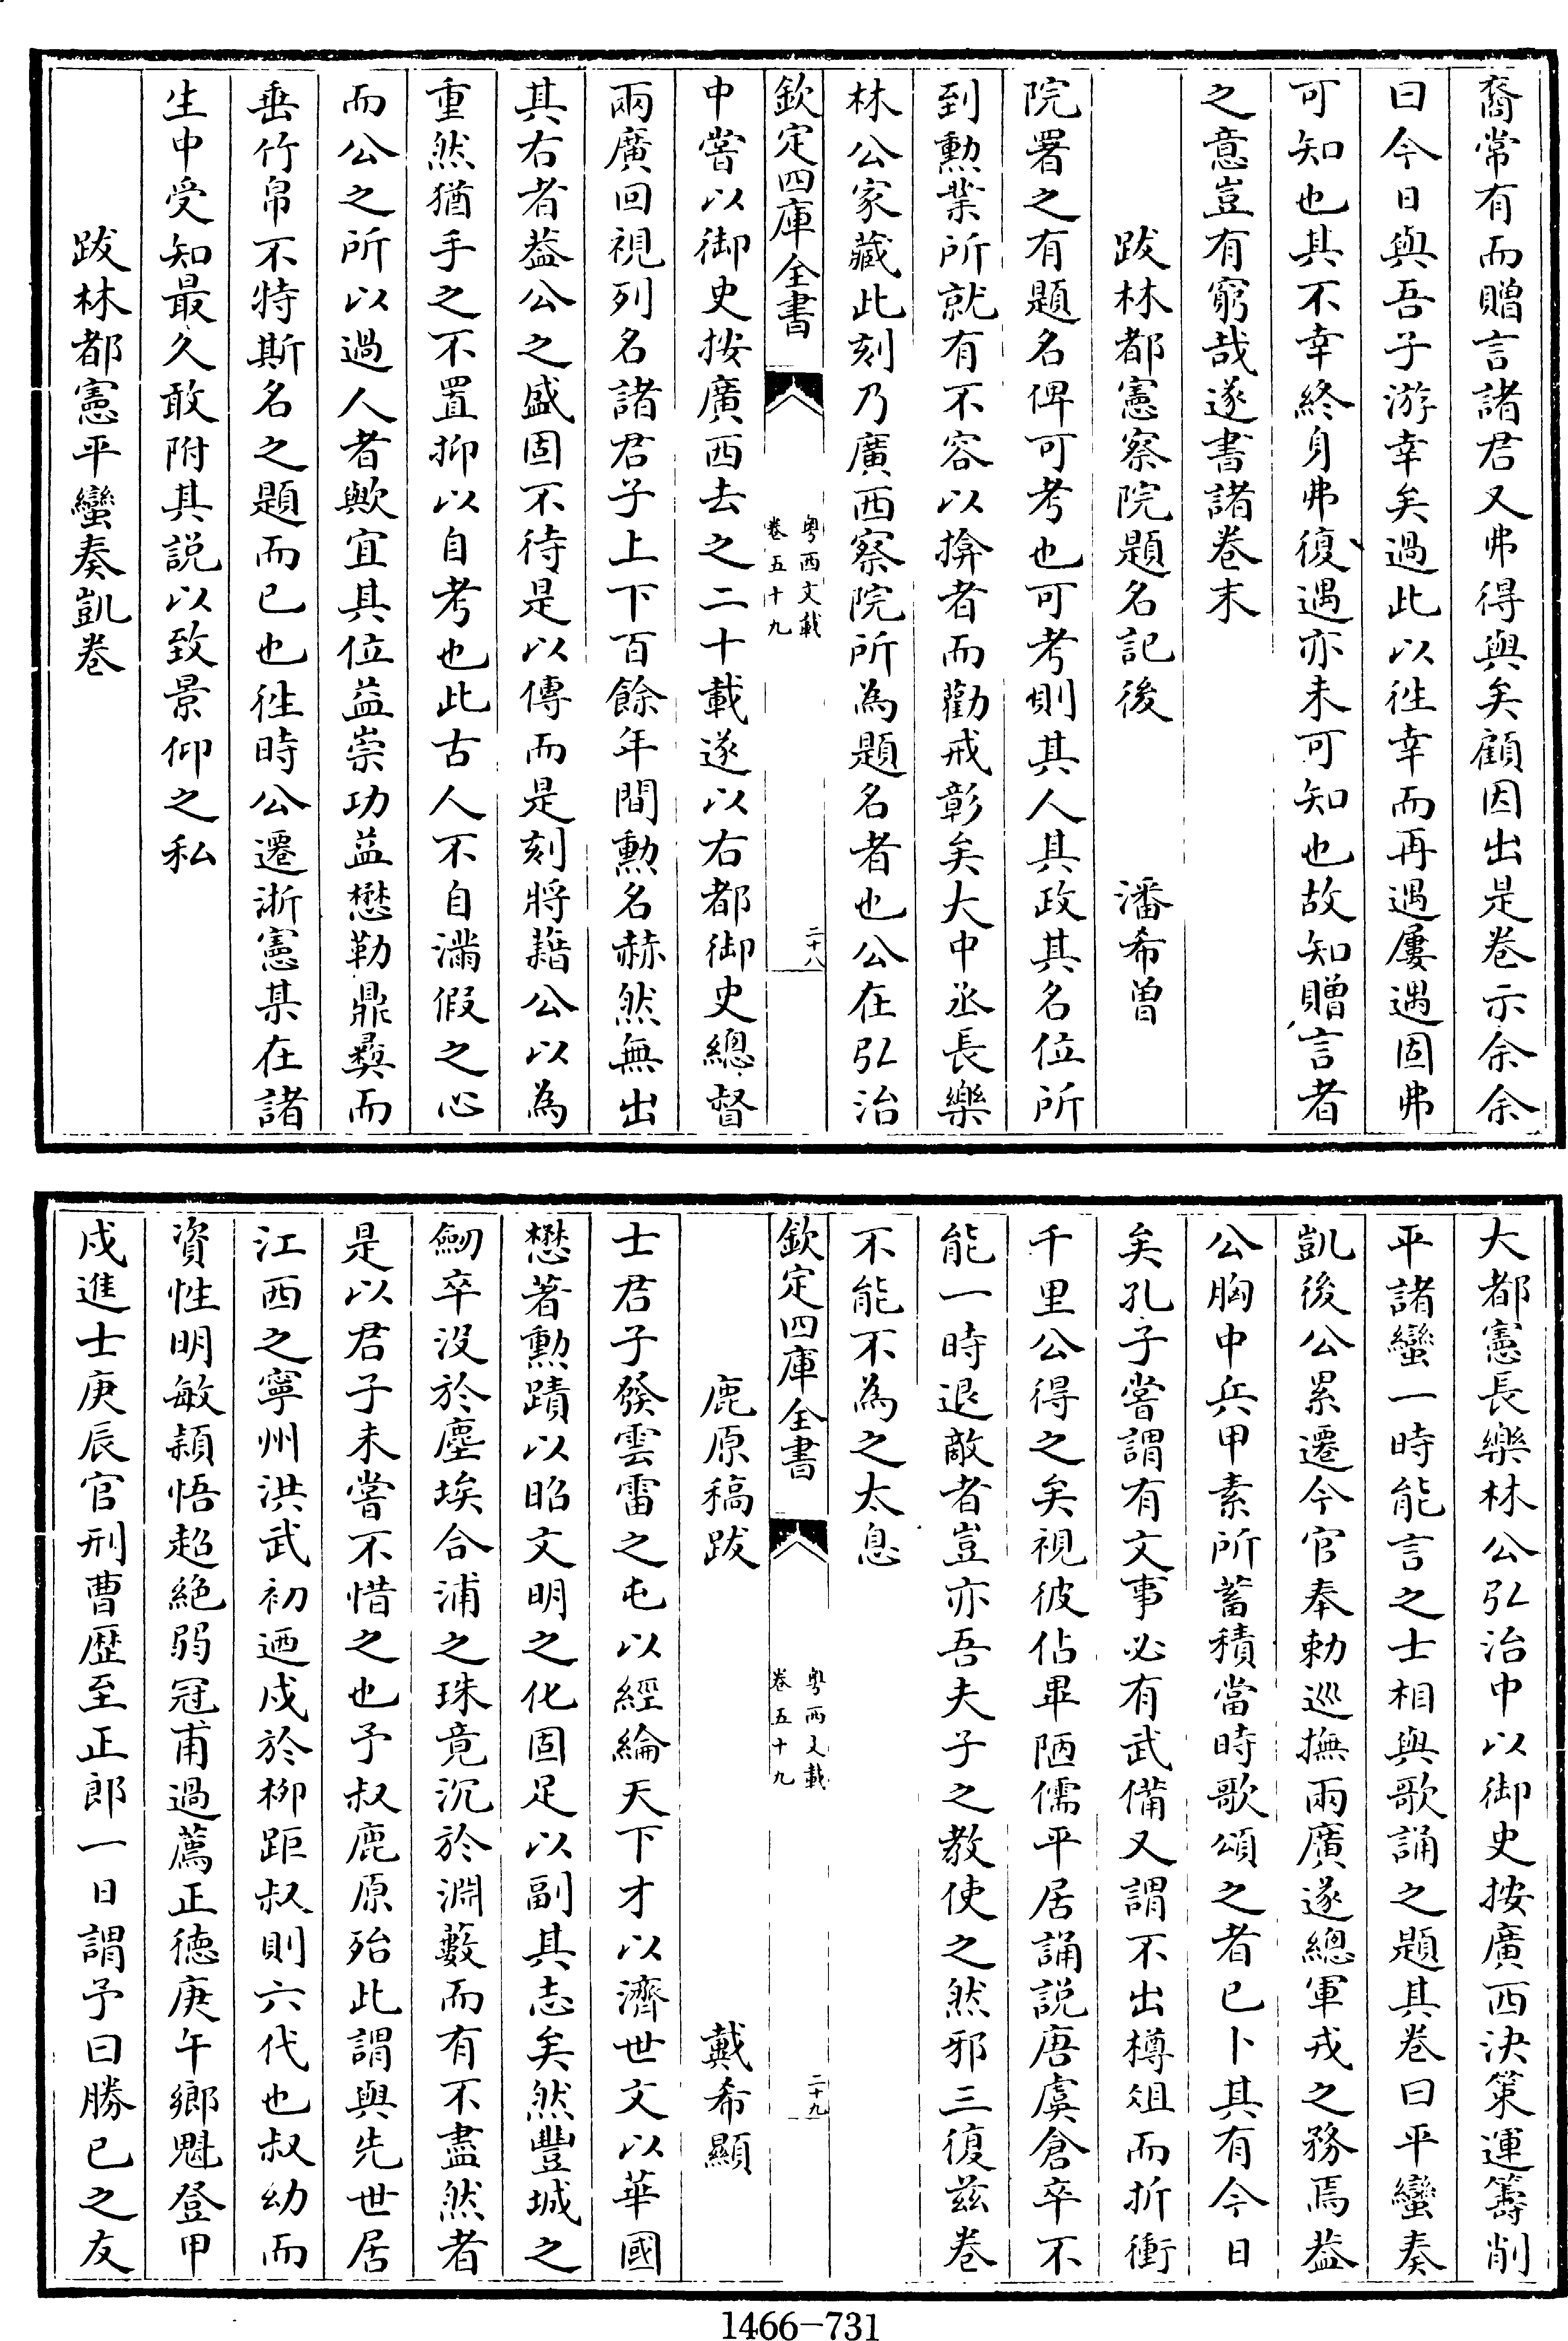 裔常有而贈言諸君又弗得與矣顧因出是卷示余余
曰今日與吾子游幸矣過此以徃幸而再遇屢遇固弗
可知也其不幸終身弗復遇亦未可知也故知贈言者
之意豈有窮哉遂書諸卷末
跋林都憲察院題名記後 潘希曽
院署之有題名俾可考也可考則其人其政其名位所
到勲業所就有不容以揜者而勸戒彰矣大中丞長樂
林公家藏此刻乃廣西察院所為題名者也公在弘治
欽定四庫全書 粤西文載 卷五十九 二十八
中嘗以御史按廣西去之二十載遂以右都御史總督
兩廣回視列名諸君子上下百餘年間勲名赫然無出
其右者葢公之盛固不待是以傳而是刻將藉公以為
重然猶手之不置抑以自考也此古人不自滿假之心
而公之所以過人者歟宜其位益崇功益懋勒鼎彞而
垂竹帛不特斯名之題而已也徃時公遷浙憲某在諸
生中受知最久敢附其說以致景仰之私
跋林都憲平蠻奏凱卷
大都憲長樂林公弘治中以御史按廣西決策運籌削
平諸蠻一時能言之士相與歌誦之題其卷曰平蠻奏
凱後公累遷今官奉勅巡撫兩廣遂總軍戎之務焉葢
公胸中兵甲素所蓄積當時歌頌之者已卜其有今日
矣孔子嘗謂有文事必有武備又謂不出樽俎而折衝
千里公得之矣視彼佔畢陋儒平居誦說唐虞倉卒不
能一時退敵者豈亦吾夫子之教使之然邪三復兹卷
不能不為之太息
欽定四庫全書 粤西文載 卷五十九 二十九
鹿原稿跋 戴希顯
士君子發雲雷之屯以經綸天下才以濟世文以華國
懋著勲蹟以昭文明之化固足以副其志矣然豐城之
劒卒沒於塵埃合浦之珠竟沉於淵藪而有不盡然者
是以君子未嘗不惜之也予叔鹿原殆此謂與先世居
江西之寧州洪武初迺戍於柳距叔則六代也叔幼而
資性明敏穎悟超絶弱冠甫過薦正徳庚午鄉魁登甲
戍進士庚辰官刑曹歴至正郎一日謂予曰勝已之友
1466-731